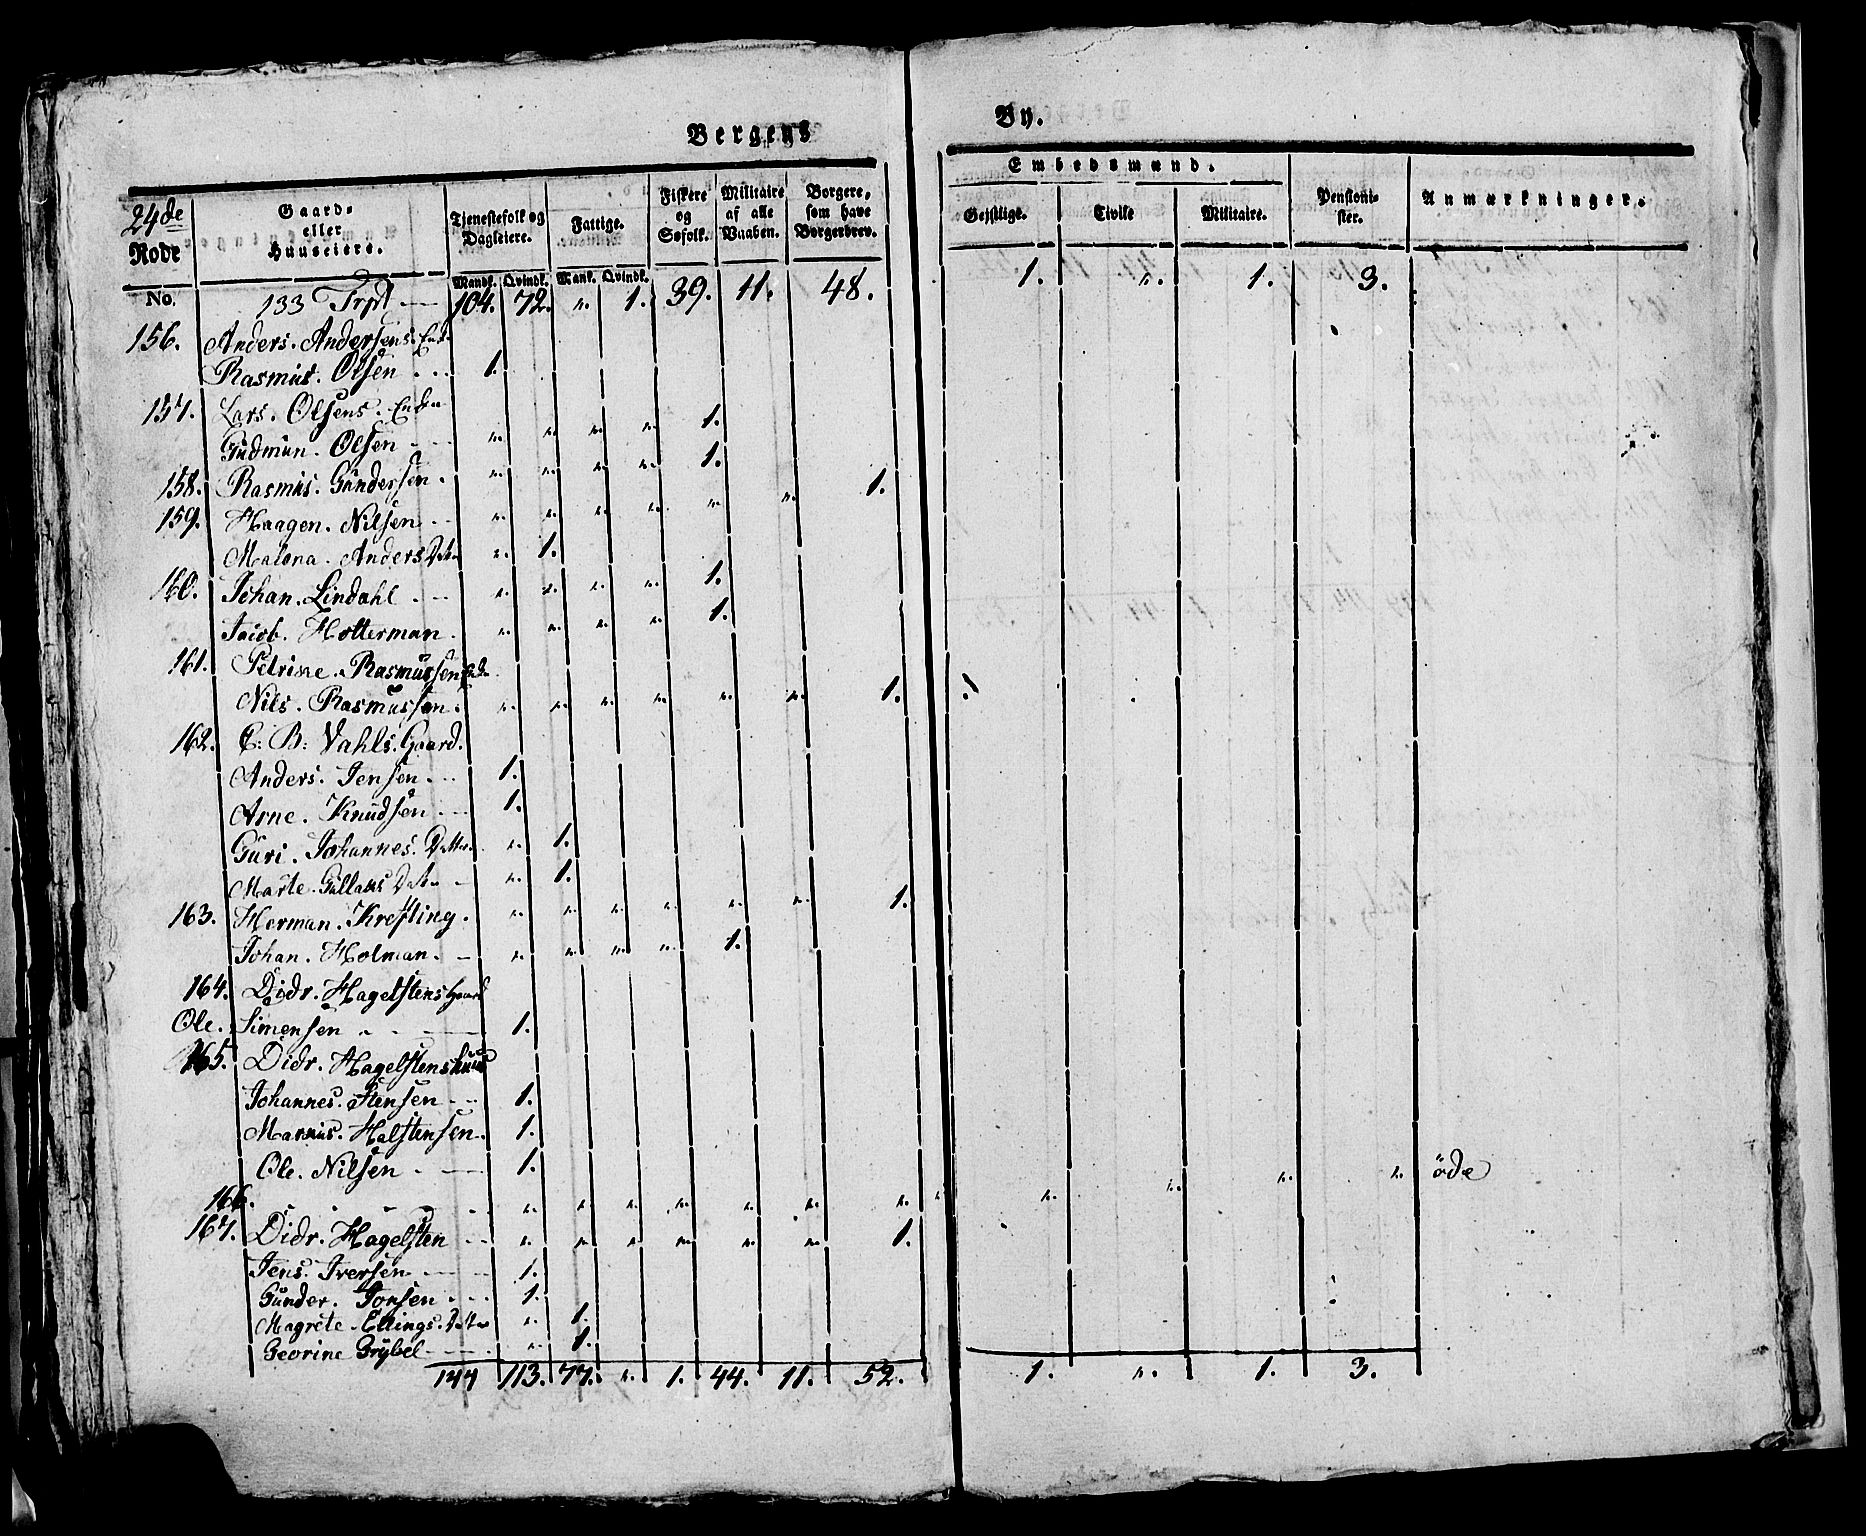 Bergens By.
24de Rode
Gaard- eller Huuseiere.
Tjenestefolk og Dagleiere.
Fattige.
Fiskere og Søfolk.
Militaire af alle Vaaben.
Borgere, som have Borgerbrev.
Embedsmænd.
Gejstlige. Civile Militaire.
Pensionister.
Anmærkninger.
No. Mandk. Qvindk. Mank. Qvindk.
133 Trpt 104. 72. „ 1. 39. 11. 48. 1. „ 1. 3.
156. Anders. Andersens.
Rasmus. Olsen 1.
157. Lars. Olsens.
Gudmun. Olsen „ „ „ „ 1.
158. Rasmus. Gundersen. „ „ „ „ 1.
159. Haagen. Nilsen „ „ „ „ „ „ 1.
Malena. Anders Datter „ 1.
160. Johan. Lindahl „ „ „ „ 1.
Jacob. Hotterman. „ „ „ „ 1.
161. Petrine. Rasmussen
Nils. Rasmussen. „ „ „ „ „ „ 1.
162. C: B: Vahls. Gaard.
Anders. Jensen 1.
Arne. Knudsen 1.
Guri. Johannes. Datter „ 1.
Marte. Datter „ 1.
163. Herman. Krefting. „ „ „ „ „ „ 1.
Johan. Holman. „ „ „ „ 1.
164. Didr. Hagelstens Gaard
Ole. Simensen 1.
165. Didr. Hagelstens huus
Johannes. Stensen 1.
Markus. Halstensen. 1.
Ole. Nilsen 1.
166. „ „ „ „ „ „ „ „ „ „ „ øde
167. Didr. Hagelsten „ „ „ „ „ „ 1.
Jens. Iversen 1.
Gunder. Jonsen 1.
Magrete. Ellings. Datter „ 1.
Georine Grybel „ 1.
144 113. 77. „ 1. 44. 11. 52. 1. „ 1. 3.